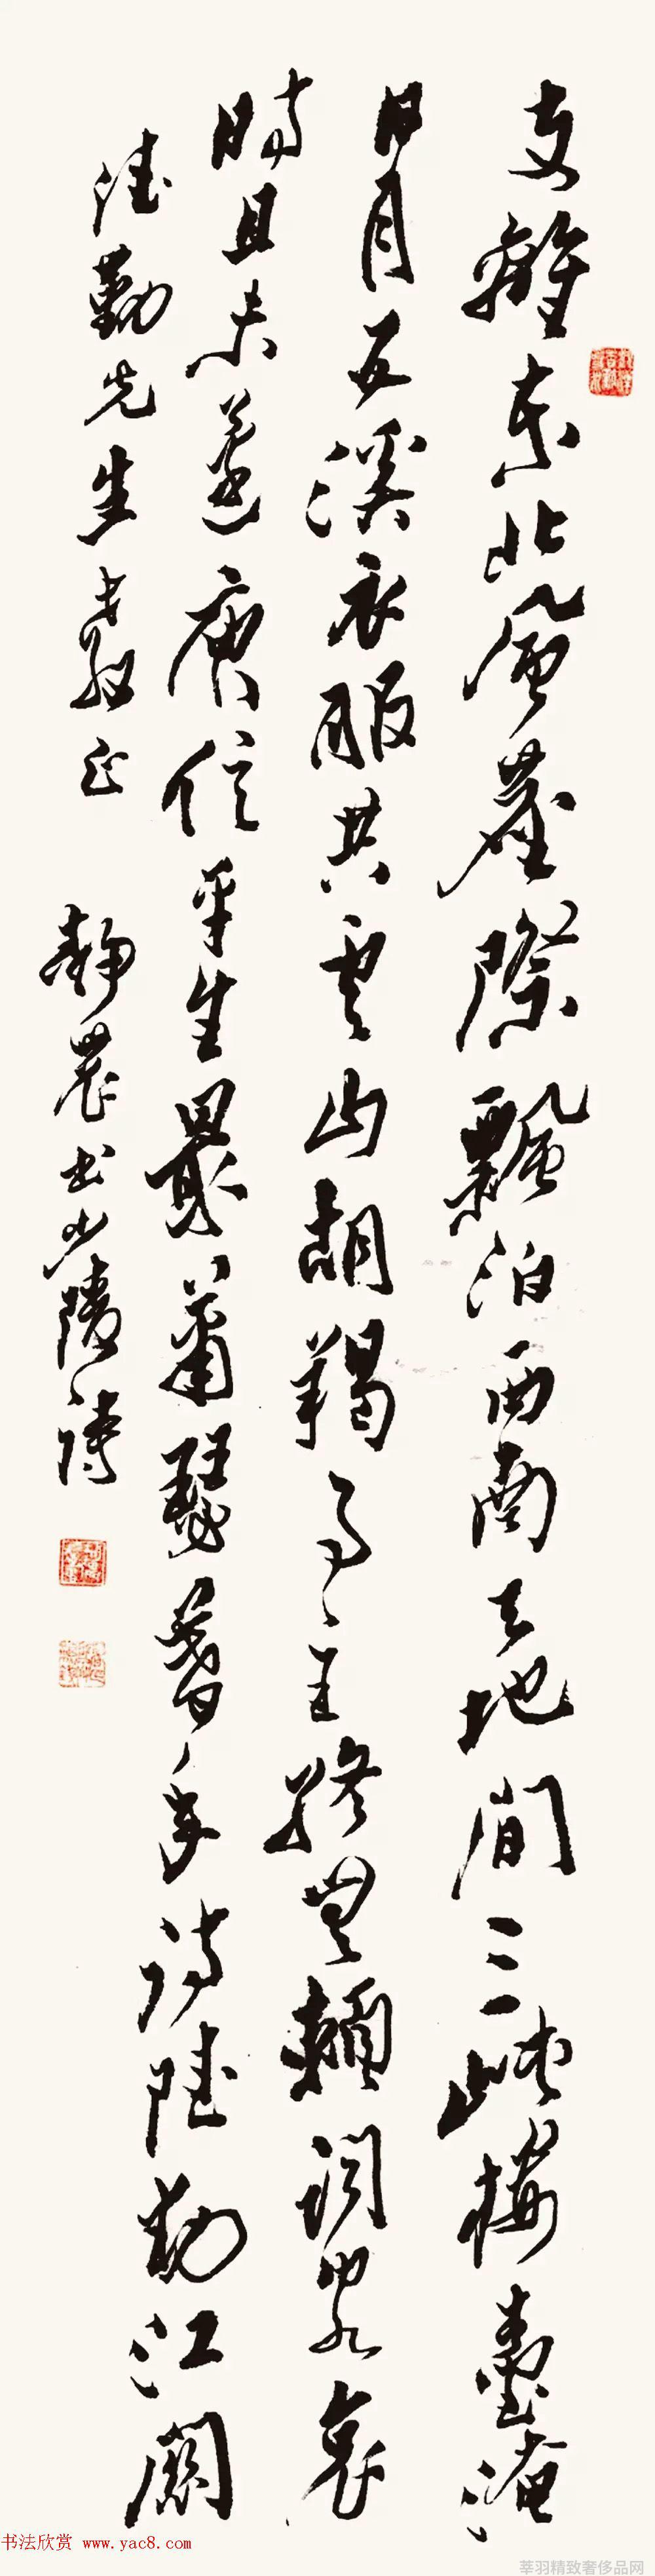 支離東北風塵際飄泊西南天地間三峽樓臺淹
日月五溪衣服共雲山胡羯事主終無賴詞客哀
時且未還庾信平生最蕭瑟暮年詩賦動江關
勤先生教正 靜農書少陵詩
书法欣赏 www.yac8.com
莘羽精致奢侈品网